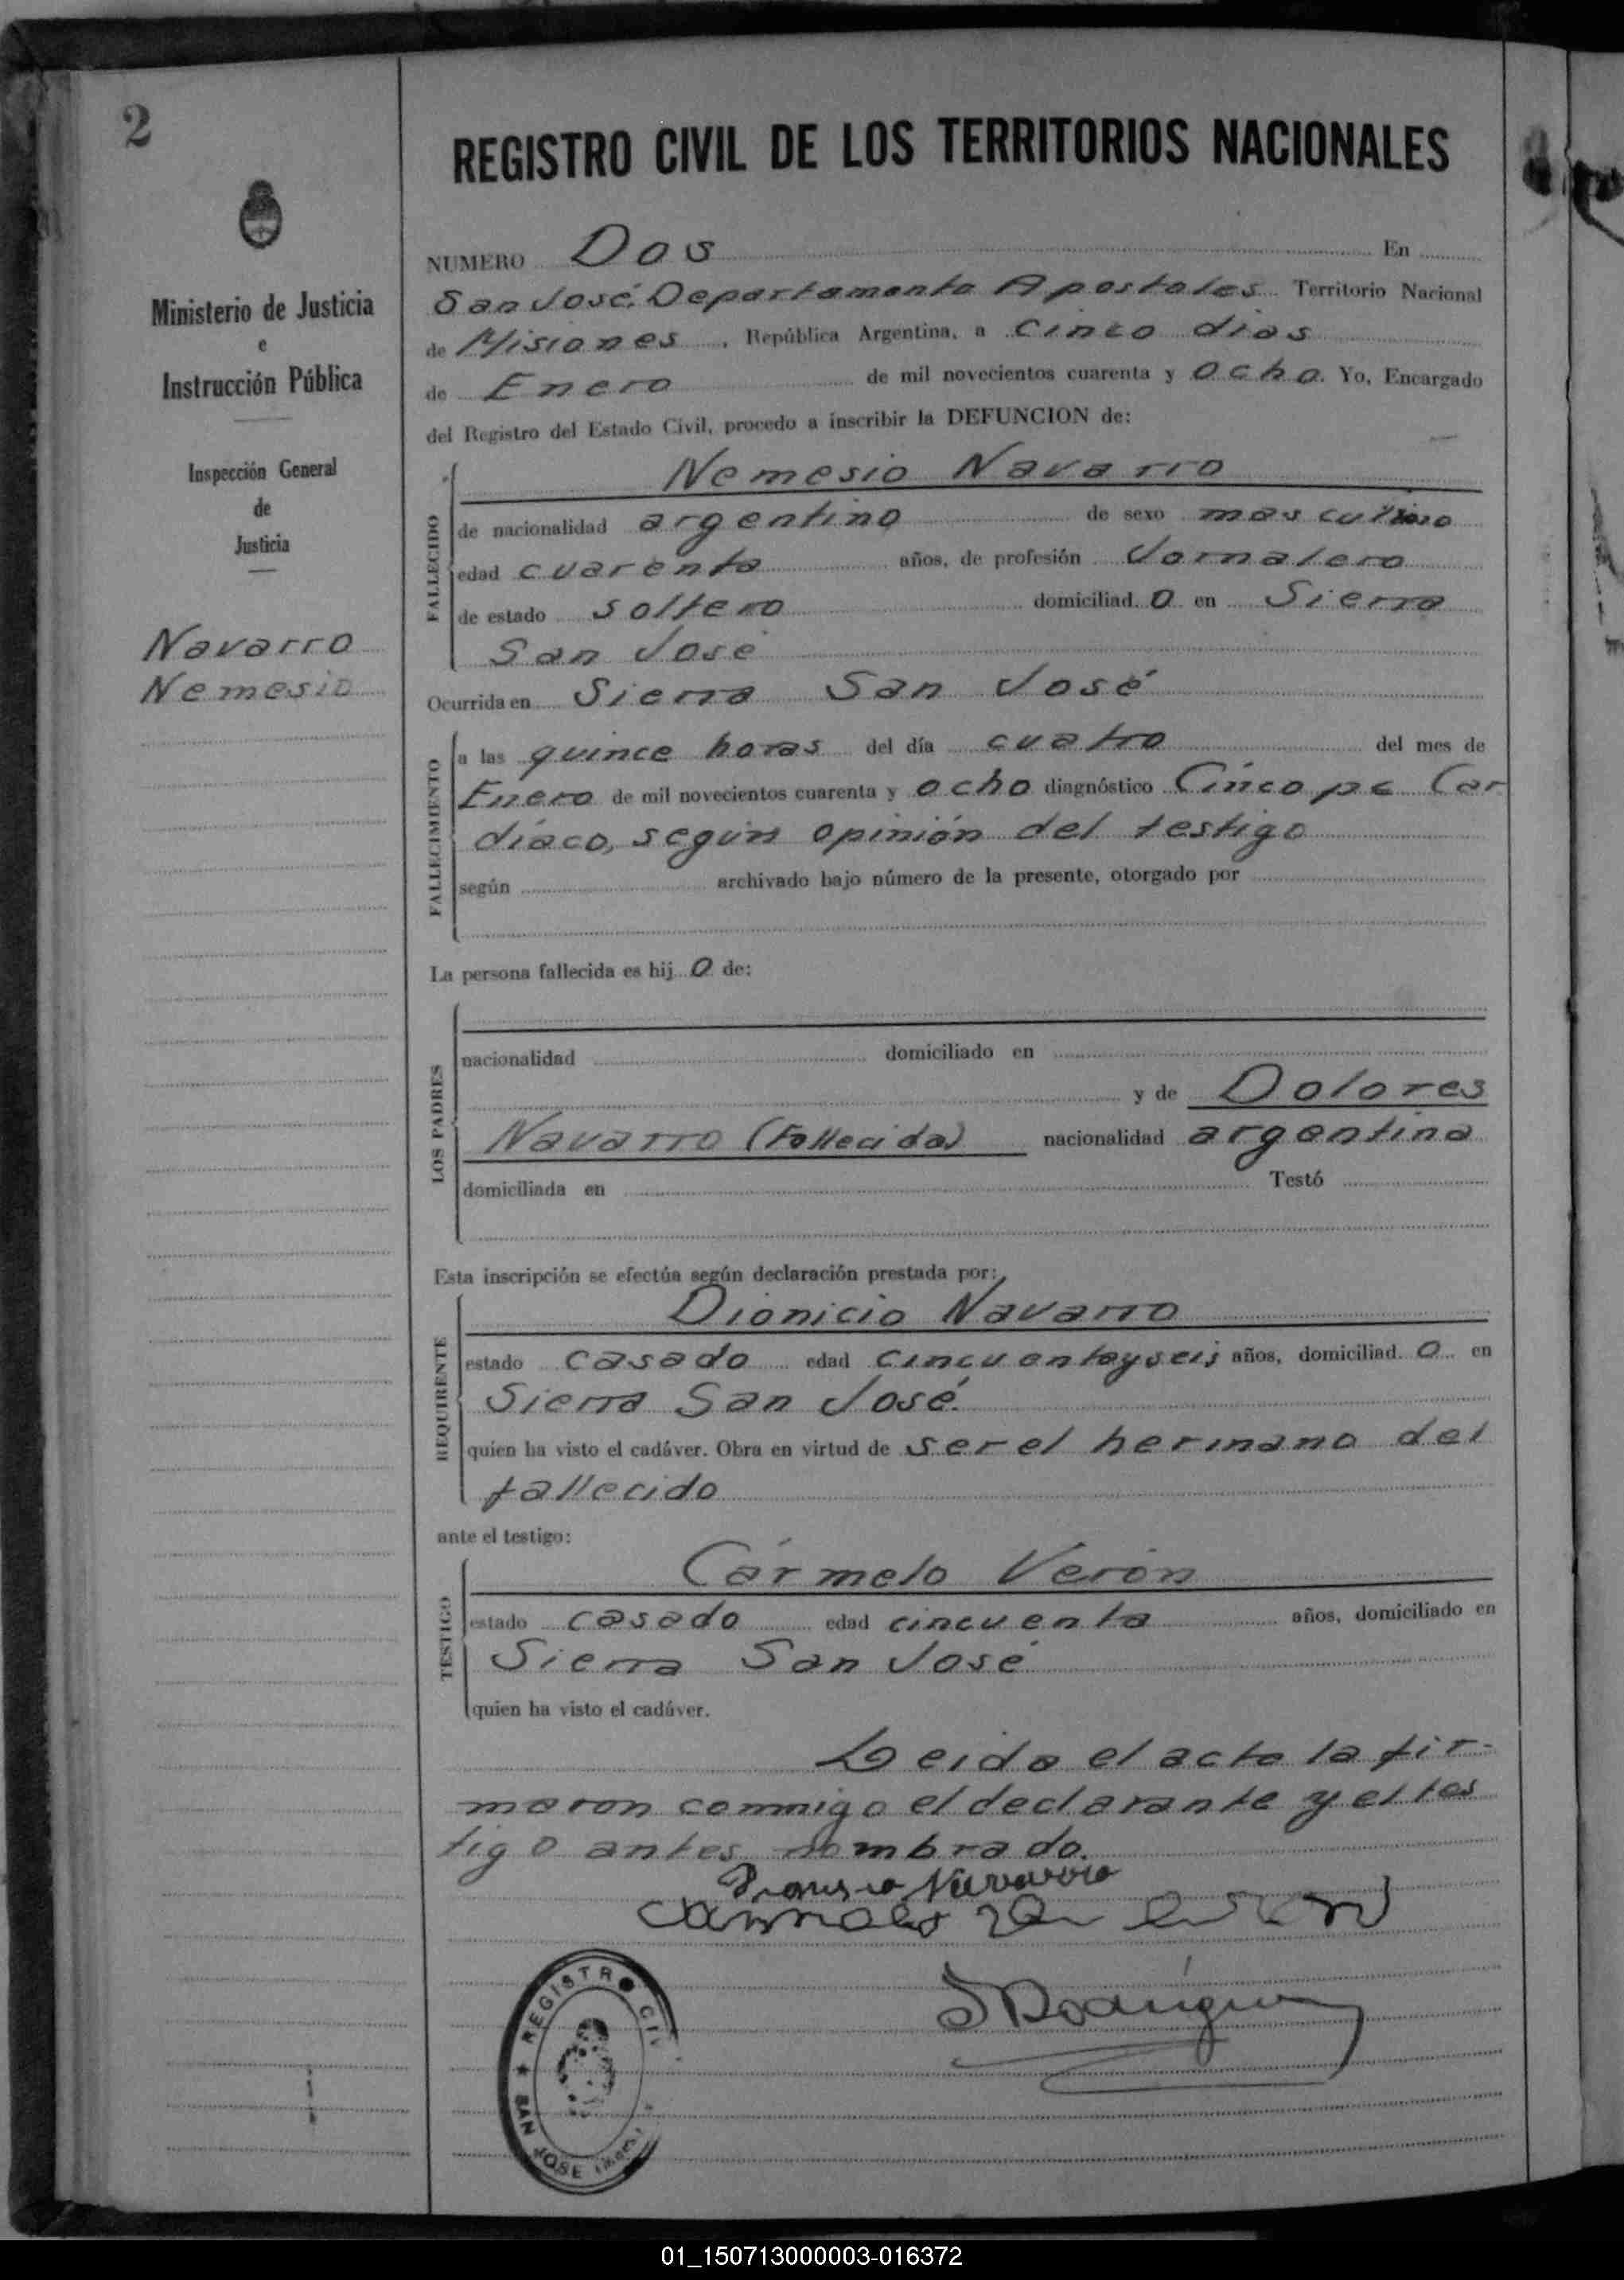 2
REGISTRO CIVIL DE LOS TERRITORIOS NACIONALES
Ministerio de Justicia
e
Instrucción Pública
Inspección General
de
Justicia
Navarro
Nemesio
NUMERO Dos En
San José, Departamento Apostoles Territorio Nacional
de Misiones, República Argentina, a cinco dias
de Enero de mil novecientos cuarenta y ocho. Yo, Encargado
del Registro del Estado Civil, procedo a inscribir la DEFUNCION de:
FALLECIDO
Nemesio Navarro
de nacionalidad argentino de sexo masculino
edad cuarenta años, de profesión Jornalero
de estado soltero domiciliad o en Sierra
San José
Ocurrida en Sierra San José
FALLECIMIENTO
a las quince horas del día cuatro del mes de
Enero de mil novecientos cuarenta y ocho diagnóstico Cincope Car
diaco, según opinión del testigo
según archivado bajo número de la presente, otorgado por
La persona fallecida es hij o de:
LOS PADRES
nacionalidad domiciliado en
y de Dolores
Navarro (Fallecida) nacionalidad argentina
domiciliada en Testó
Esta inscripción se efectúa según declaración prestada por:
REQUIRENTE
Dionicio Navarro
estado casado edad cincuentayseis años, domiciliad o en
Sierra San José.
quien ha visto el cadáver. Obra en virtud de ser el hermano del
fallecido
ante el testigo:
TESTIGO
Cármelo Verón
estado casado edad cincuenta años, domiciliado en
Sierra San José
quien ha visto el cadáver.
Leida el acta la fir-
maron conmigo el declarante y el tes
tigo antes nombrado.
Dionisio Navarro
JRodríguez
REGISTRO CIV
SAN JOSE
01_150713000003-016372